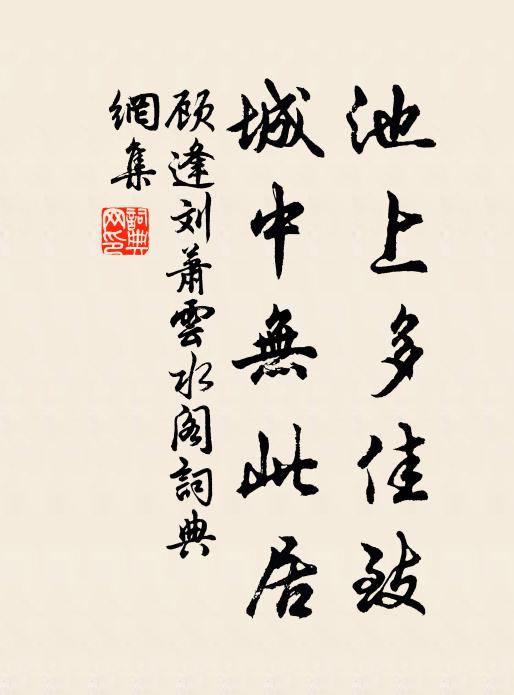 池上多佳致
城中無此居
顾逢刘萧雲水阁詞典
網集
詞典
网印